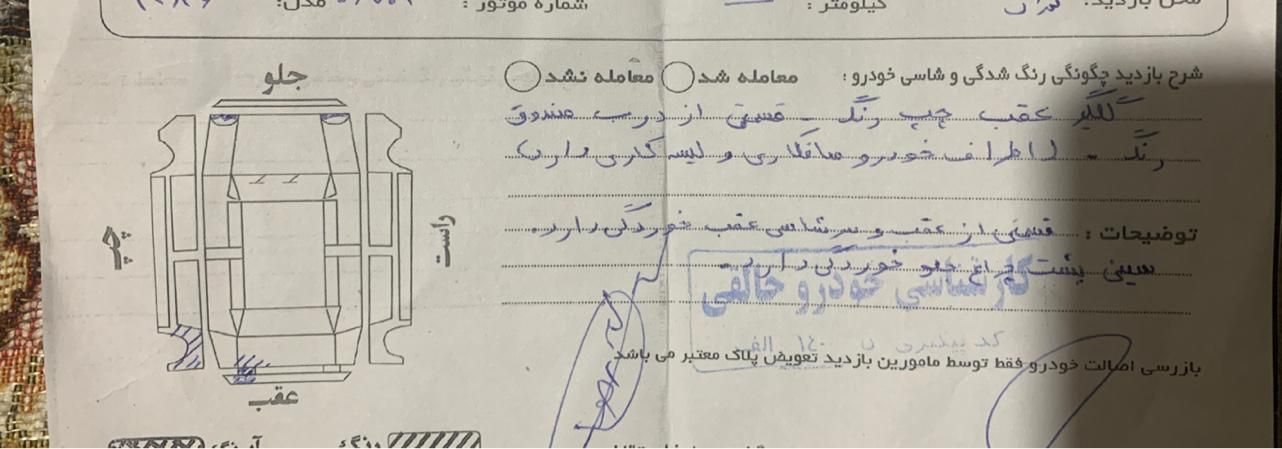 محل بازدید: تهران کیلومتر : شماره موتور : مدل:
شرح بازدید چگونگی رنگ شدگی و شاسی خودرو : معامله شد معامله نشد
گلگیر عقب چپ رنگ - قسمتی از درب صندوق
رنگ - (اطراف خودرو صافکاری و لیسه کاری دارد)
توضیحات : قسمتی از عقب و سر شاسی عقب خوردگی دارد.
سینی پشت چراغ جلو خوردگی دارد -
کارشناسی خودرو خالقی
کد ۱٤۰ الف
بازرسی اصالت خودرو فقط توسط مامورین بازدید تعویض پلاک معتبر می باشد
جلو
چپ
راست
عقب
رنگ